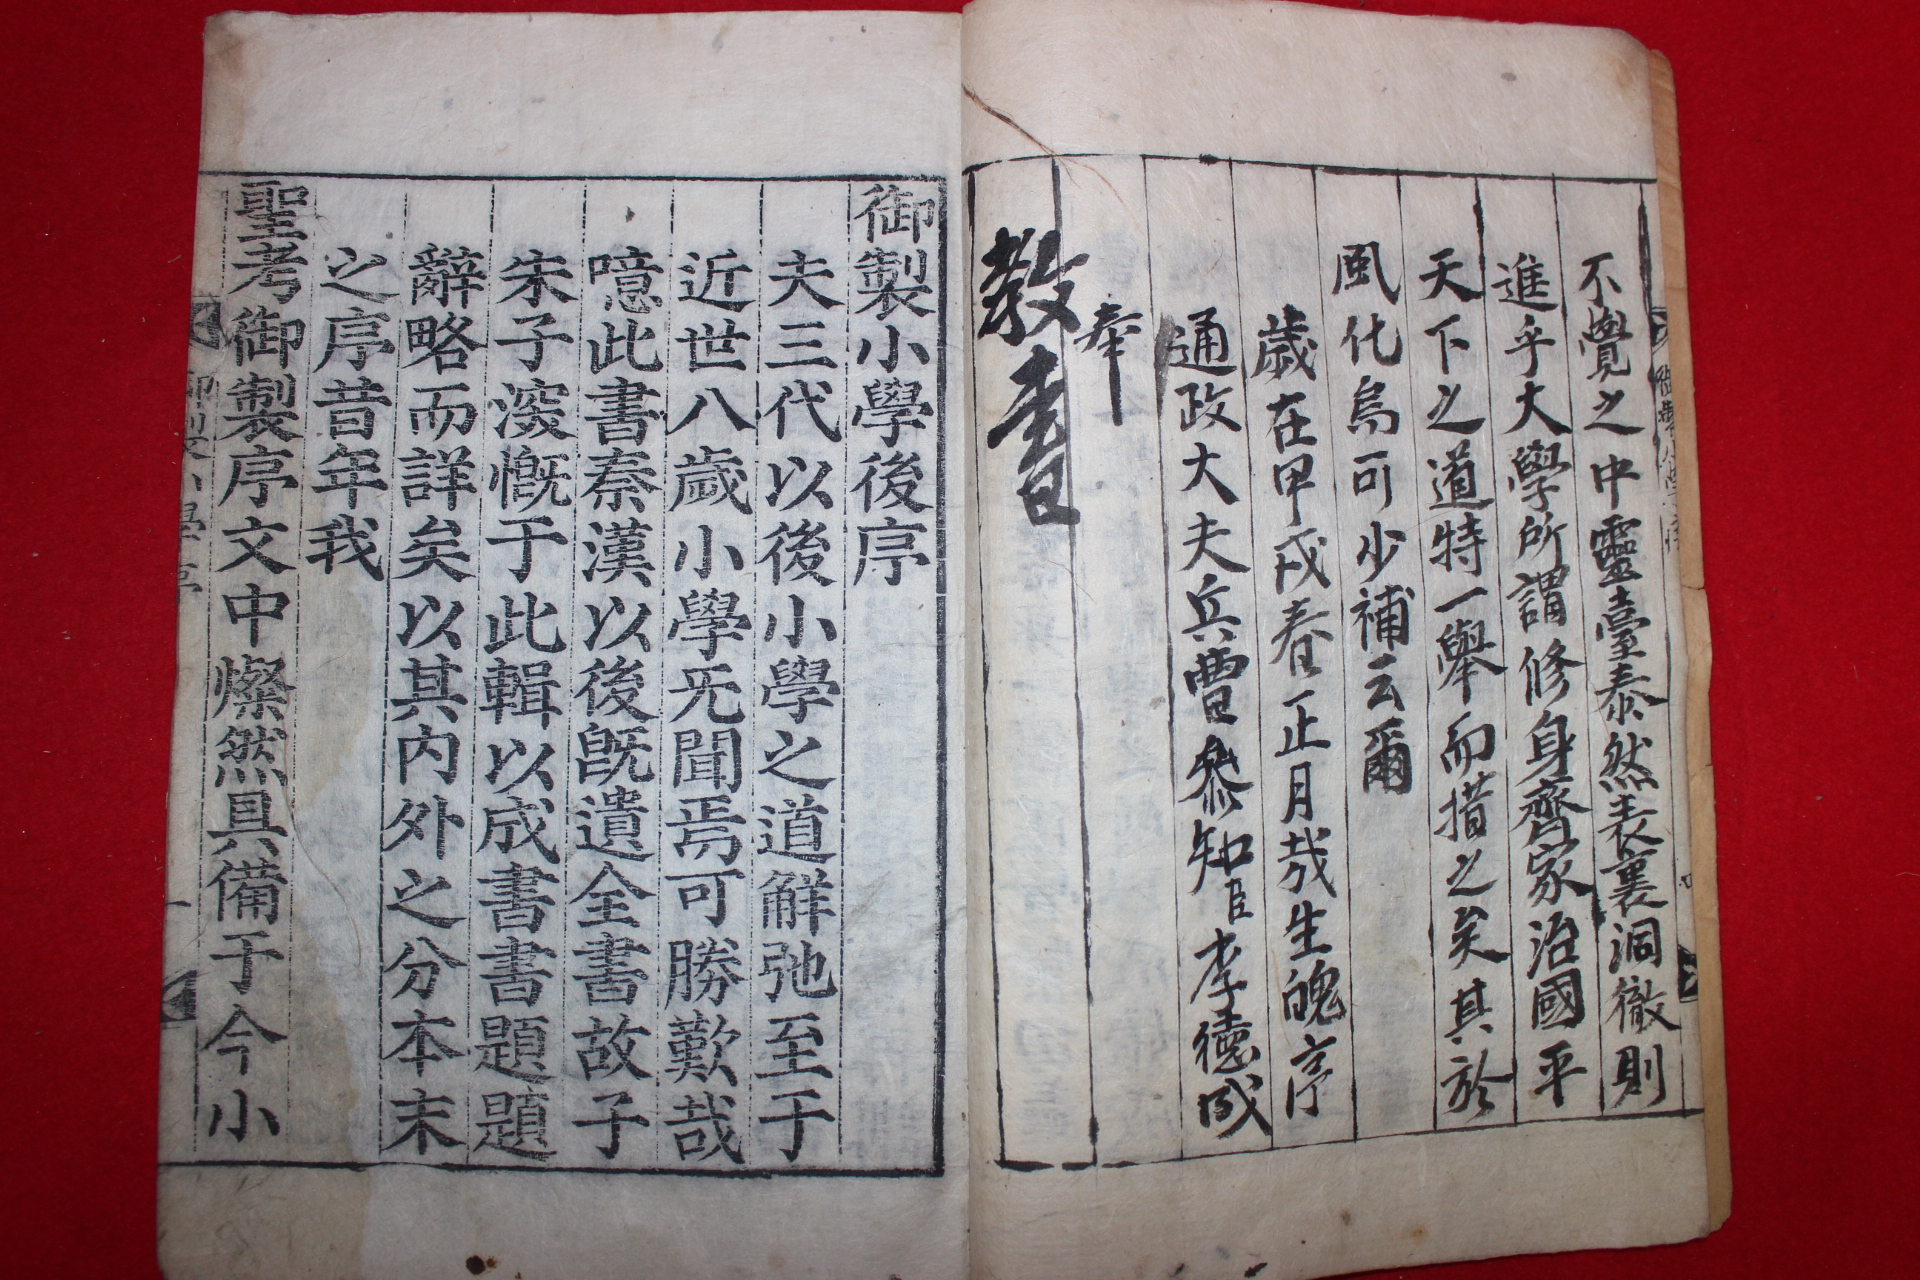 不覺之中靈臺泰然表裏洞徹則
進乎大學所謂修身齊家治國平
天下之道特一擧而措之矣其於
風化烏可少補云爾
歲在甲戌春正月哉生魄序
通政大夫兵曹參知臣李德成
奉
教書
御製小學後序
夫三代以後小學之道解弛至于
近世八歲小學旡聞焉可勝歎哉
噫此書秦漢以後旣遺全書故子
朱子深慨于此輯以成書書題題
辭略而詳矣以其內外之分本末
之序昔年我
聖考御製序文中燦然具備于今小